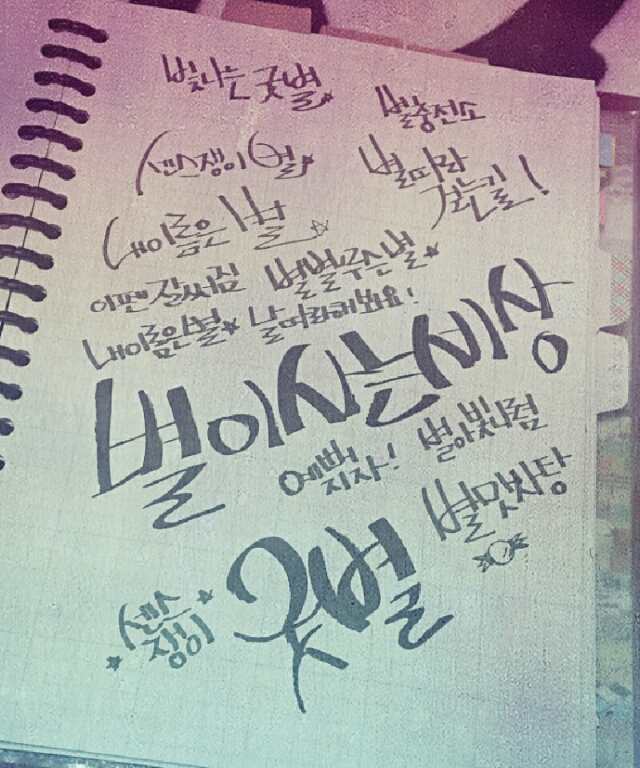 빛나는 굿별
별충전소
센스쟁이 별
별따라
가는길!
내이름은 별
이펜 잘써짐 별별루는별
내이름은별 날따라해봐요!
별이사는세상
예뻐
지자! 별아 빛나렴
별맛사탕
굿별
센스
쟁이